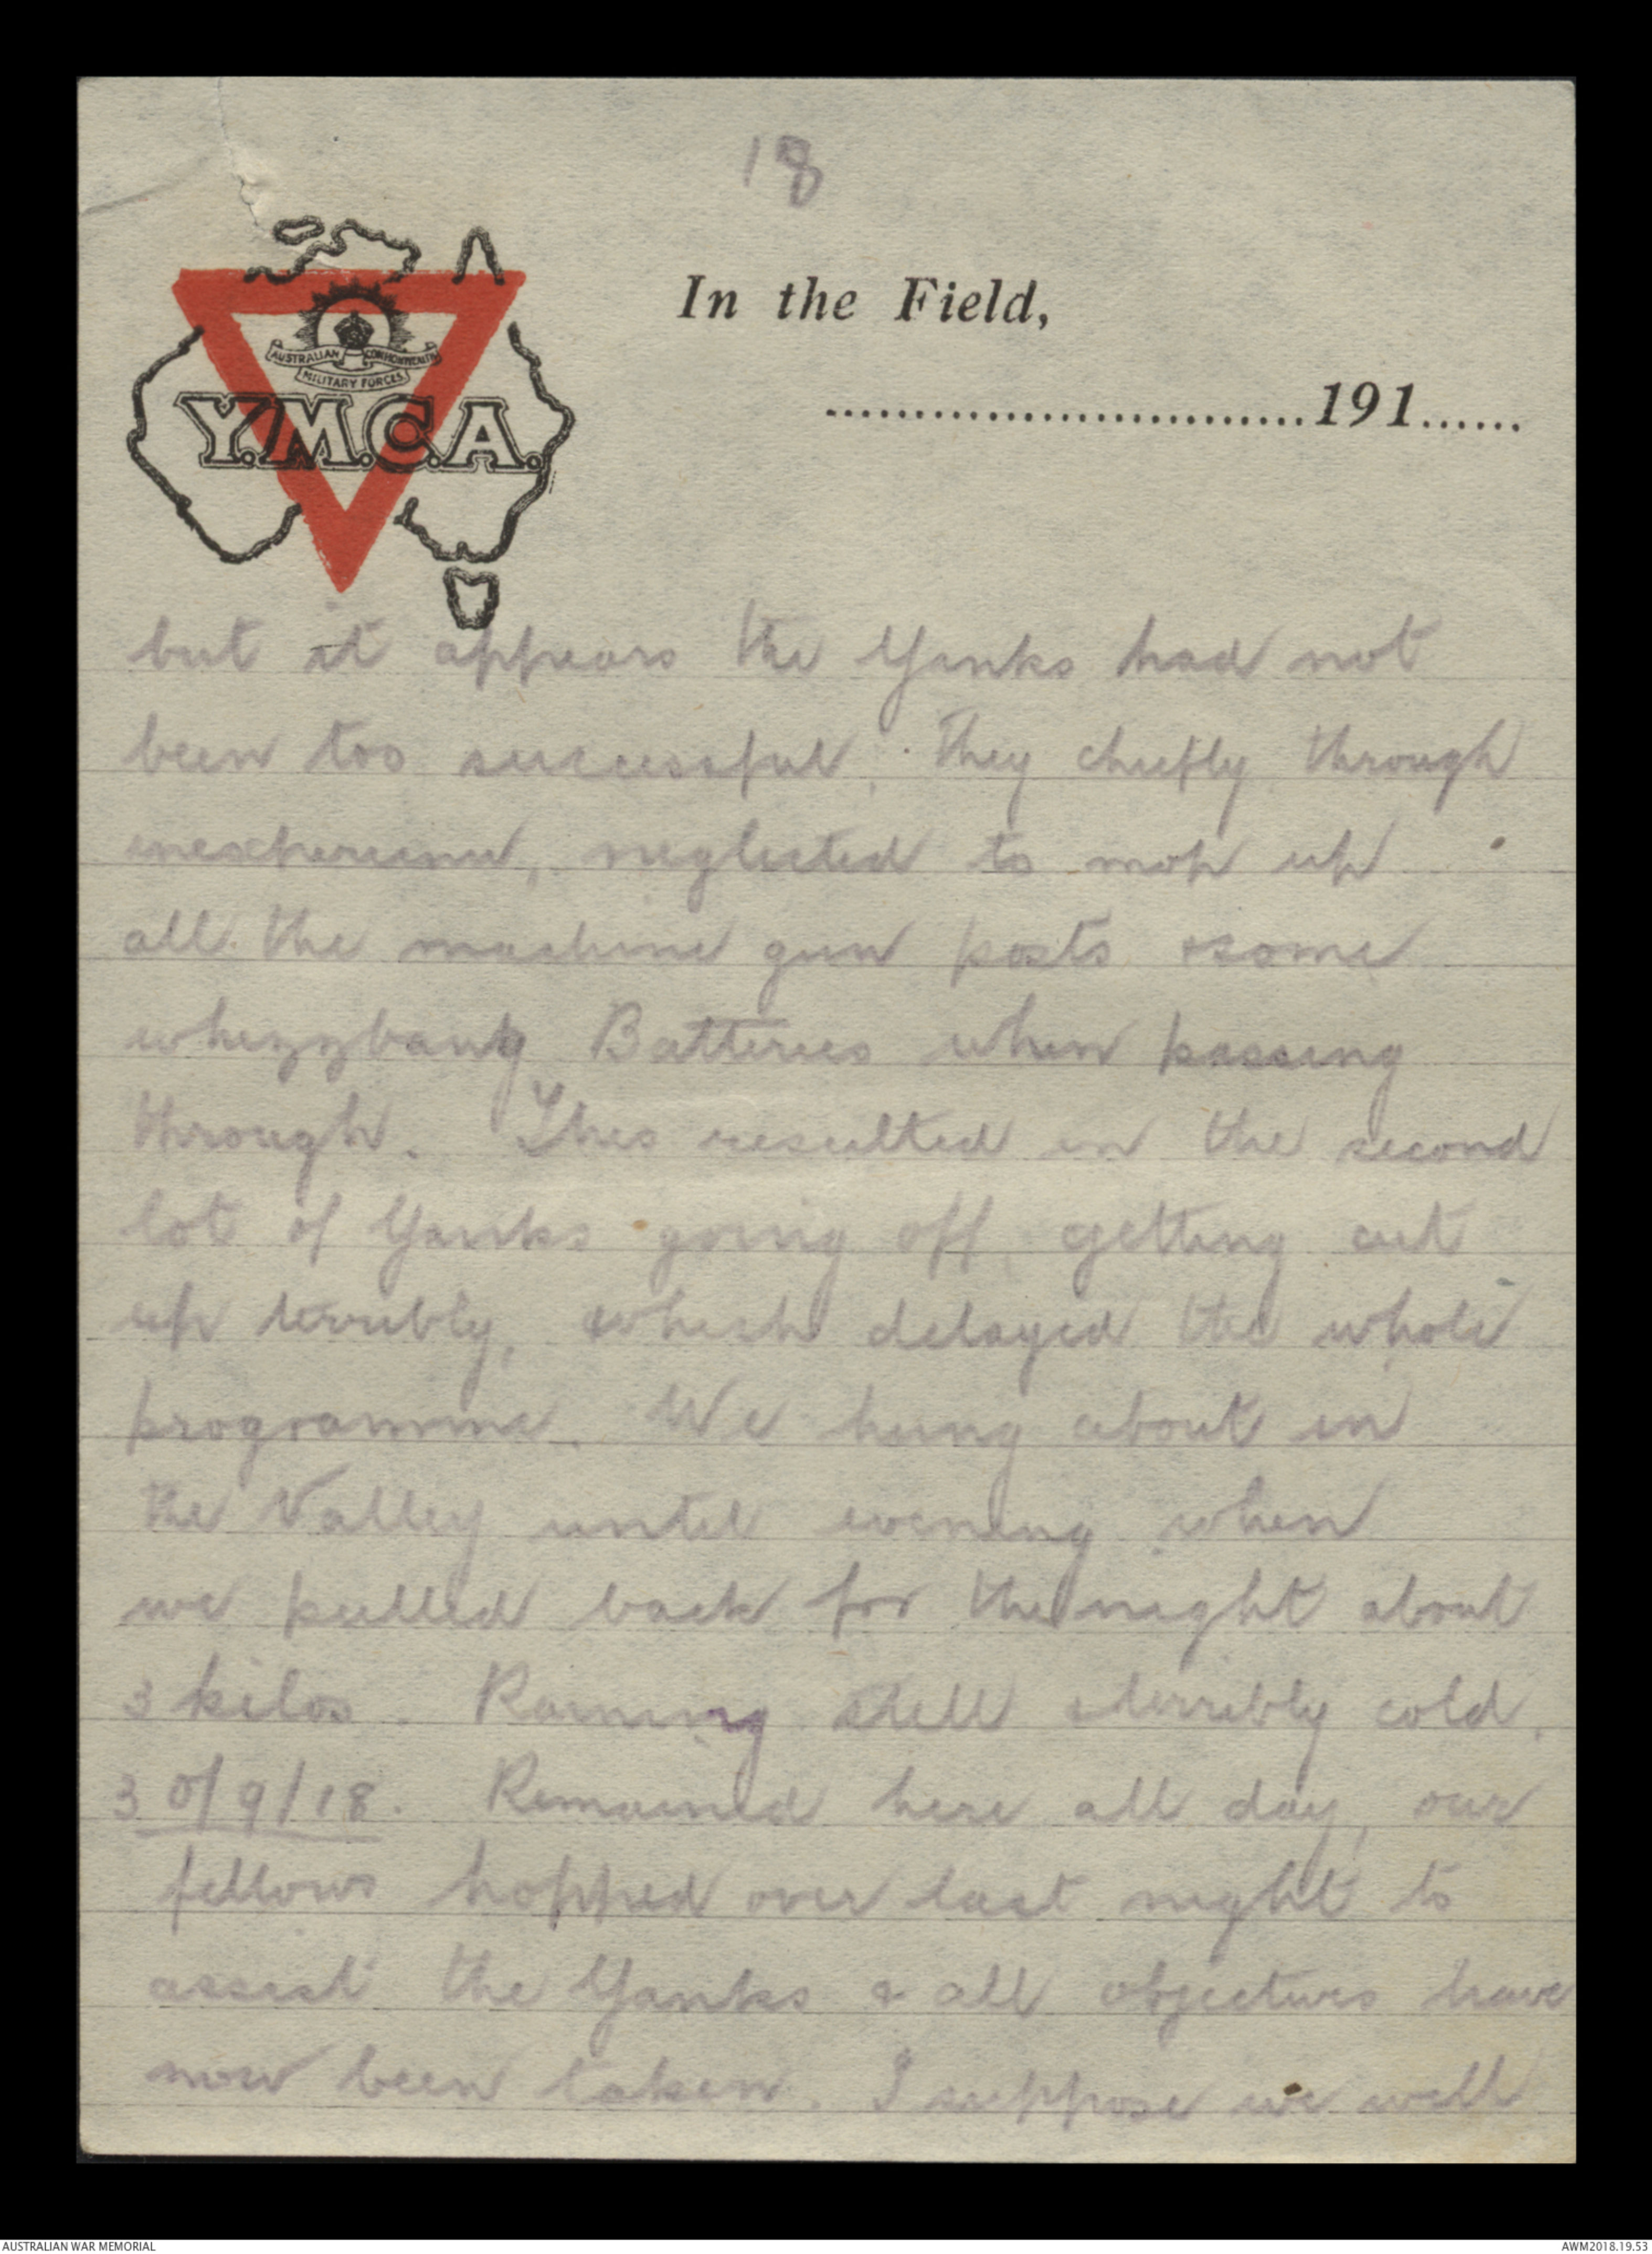 18
In the Field,
AUSTRALIAN COMMONWEALTH
MILITARY FORCES
Y.M.C.A.
..............................191......
but it appears the Yanks had not
been too successful. They chiefly through
inexperience, neglected to mop up
all the machine gun posts & some
whizzbang Batteries when passing
through. This resulted in the second
lot of Yanks going off, getting cut
up terribly, which delayed the whole
programme. We hung about in
the Valley until evening when
we pulled back for the night about
3 kilos. Raining still & terribly cold.
30/9/18. Remained here all day, our
fellows hopped over last night to
assist the Yanks & all objectives have
now been taken. I suppose we will
AUSTRALIAN WAR MEMORIAL
AWM2018.19.53